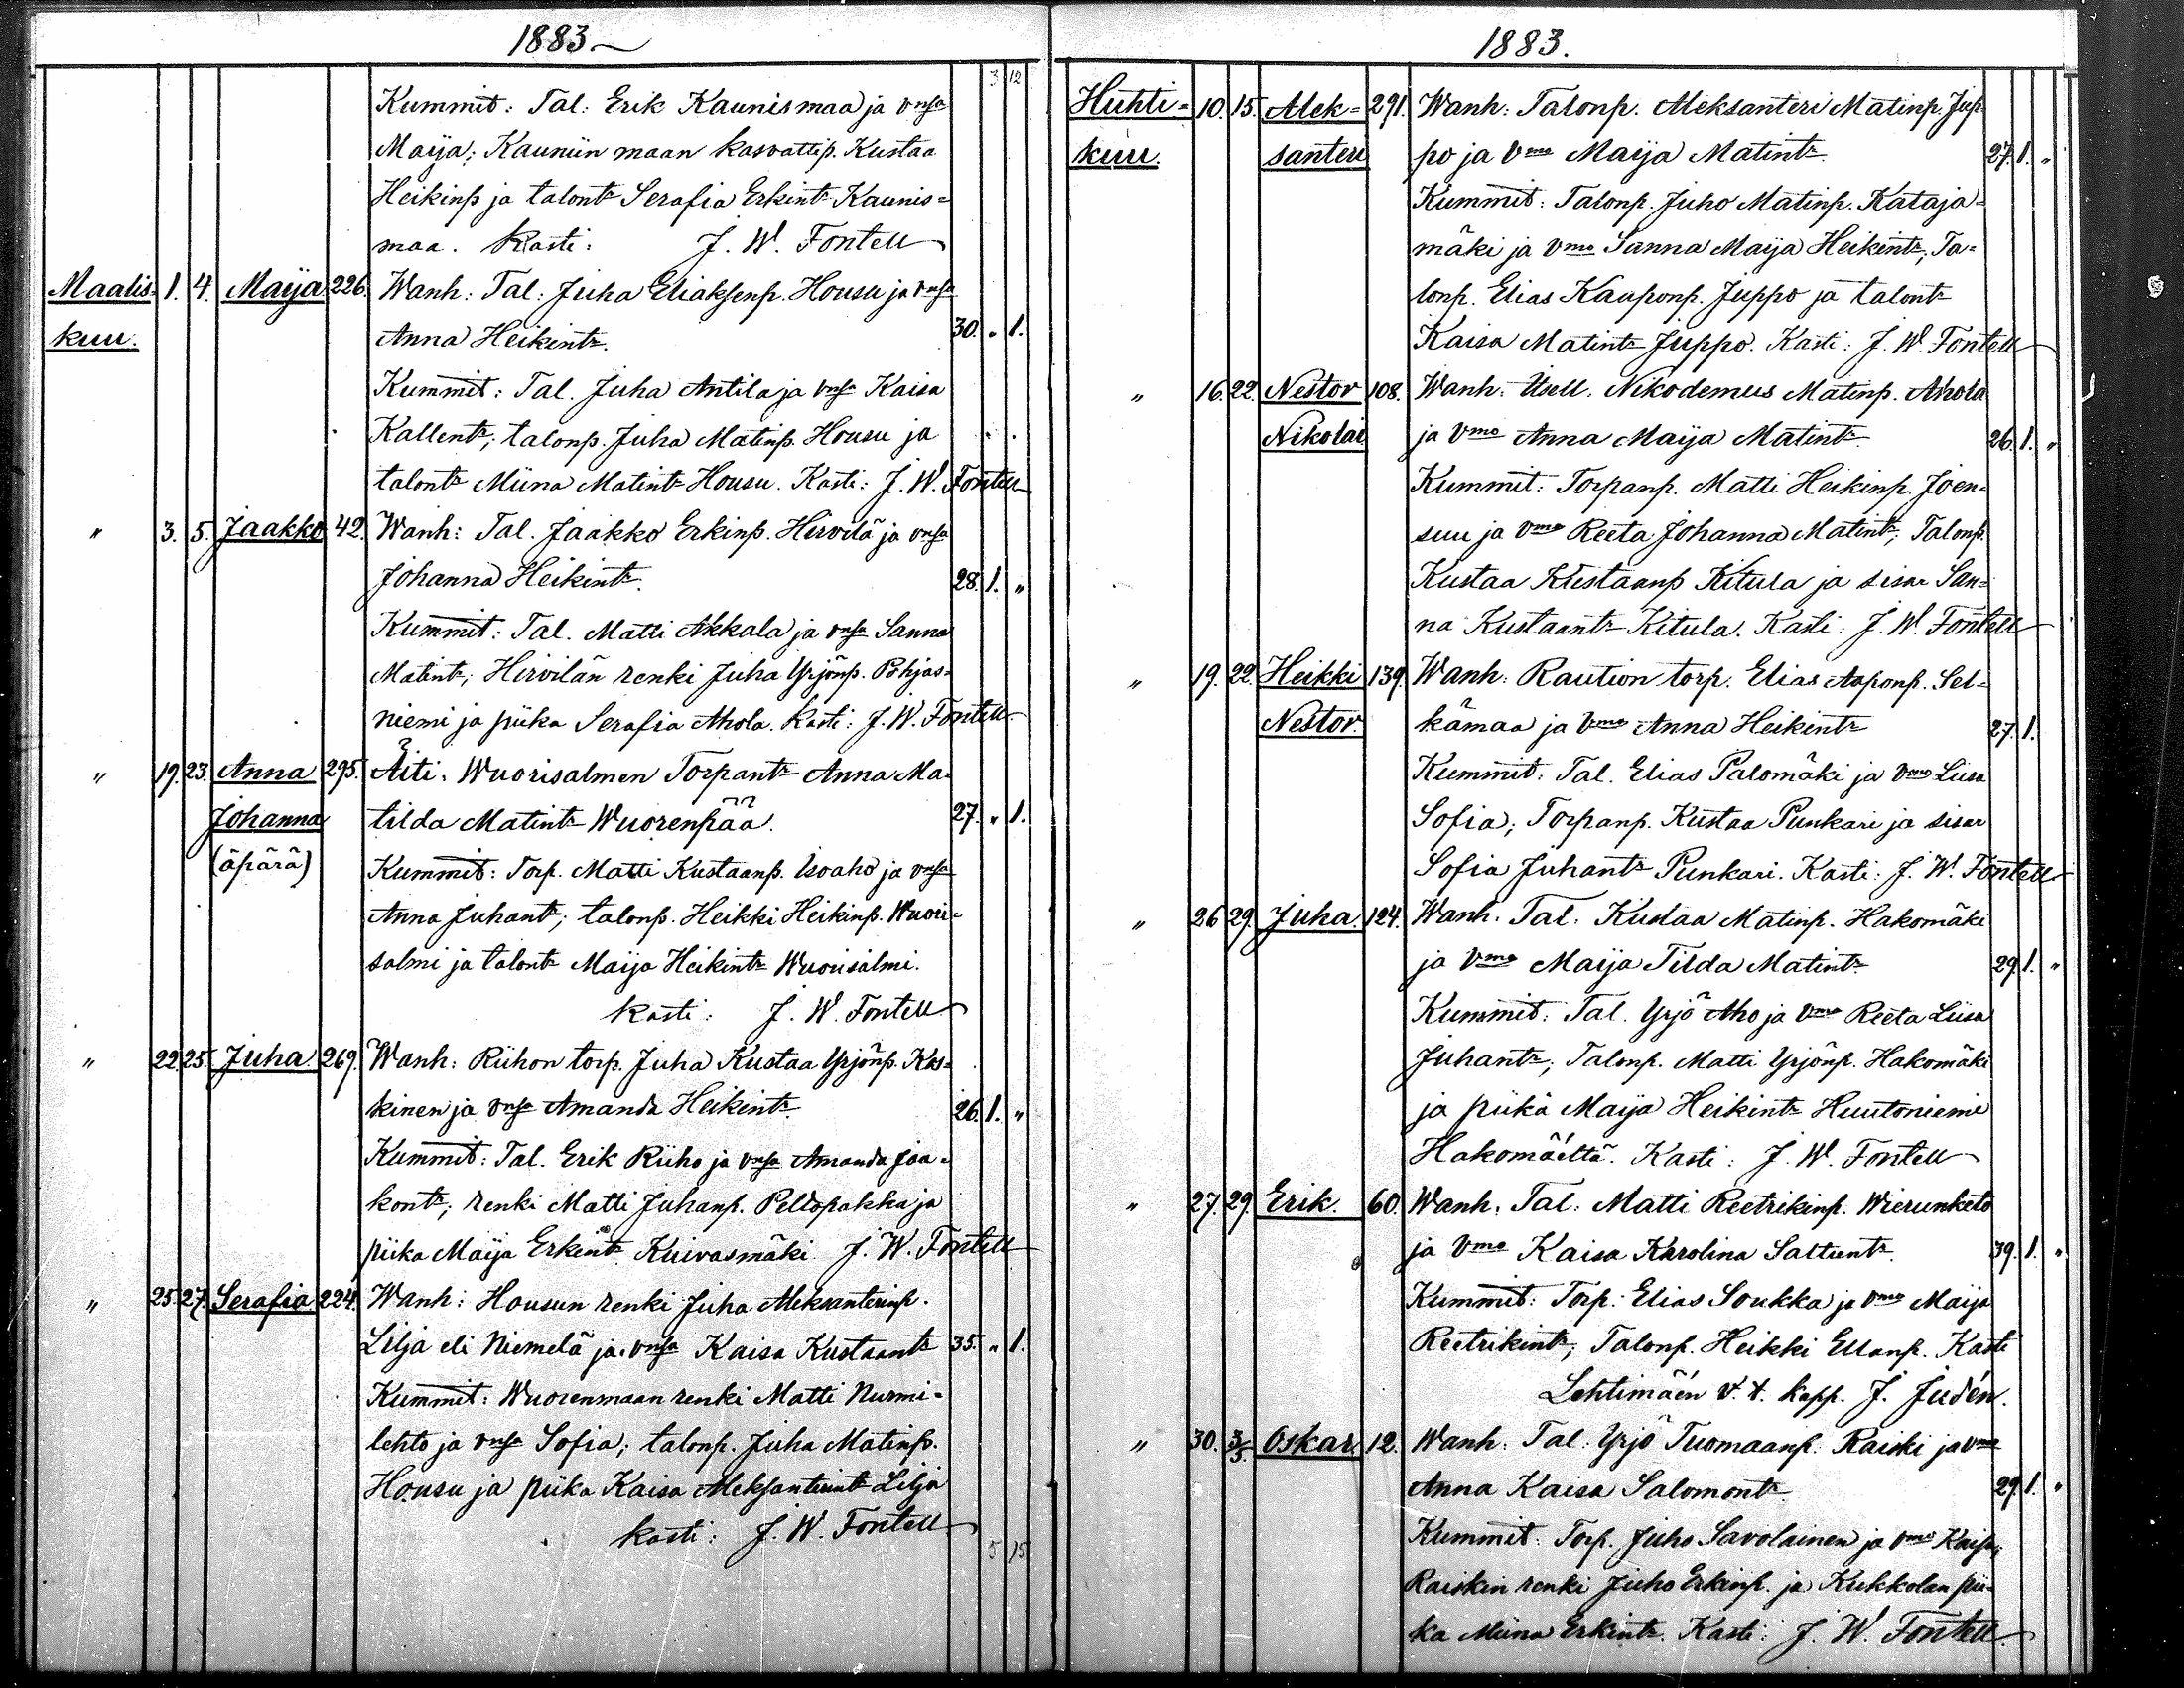 1883
3 12
Kummit: Tal: Erik Kaunismaa ja vmsa
Maija; Kauniin maan kasvattip. Kustaa
Heikinp ja talontr Serafia Erkintr Kaunis=
maa. Kasti: J. W. Fontell
Maalis= 1. 4. Maija 226. Wanh: Tal: Juha Eliaksenp. Housu ja vmsa
kuu. Anna Heikintr. 30. " 1.
Kummit: Tal. Juha Antila ja vmsa Kaisa
Kallentr; talonp. Juha Matinp. Housu ja
talontr Miina Matintr Housu. Kasti: J. W. Fontell
" 3. 5. Jaakko 42. Wanh: Tal. Jaakko Erkinp. Hirvilä ja vmsa
Johanna Heikintr. 28. 1. "
Kummit: Tal. Matti Akkala ja vmsa Sanna
Matintr; Hirvilän renki Juha Yrjönp. Pohjas=
niemi ja piika Serafia Ahola. Kasti: J. W. Fontell
" 19. 23. Anna 295. Äiti: Wuorisalmen Torpantr Anna Ma=
Johanna tilda Matintr Wuorenpää. 27. " 1.
(äpärä) Kummit: Torp. Matti Kustaanp. Isoaho ja vmsa
Anna Juhantr; talonp. Heikki Heikinp. Wuori=
salmi ja talontr Maija Heikintr Wuorisalmi.
kasti: J. W. Fontell
" 22. 25. Juha. 269. Wanh: Riihon torp. Juha Kustaa Yrjönp. Kos=
kinen ja vmsa Amanda Heikintr. 26. 1. "
Kummit: Tal. Erik Riiho ja vmsa Amanda Jaa=
kontr; renki Matti Juhanp. Peltopakka ja
piika Maija Erkintr Kuivasmäki. J. W. Fontell
" 25. 27. Serafia 224. Wanh: Housun renki Juha Aleksanterinp.
Lilja eli Niemelä ja vmsa Kaisa Kustaantr 35. " 1.
Kummit: Wuorenmaan renki Matti Nurmi=
lehto ja vmsa Sofia; talonp. Juha Matinp.
Housu ja piika Kaisa Aleksanterintr Lilja
kasti: J. W. Fontell
5 15
1883.
Huhti= 10. 15. Alek= 291. Wanh: Talonp. Aleksanteri Matinp. Jup=
kuu. santeri po ja Vmo Maija Matintr. 27. 1. "
Kummit: Talonp. Juho Matinp. Kataja=
mäki ja Vmo Sanna Maija Heikintr; Ta=
lonp. Elias Kauponp. Juppo ja talontr
Kaisa Matintr Juppo. Kasti: J. W. Fontell
" 16. 22. Nestor 108. Wanh: Itsell. Nikodemus Matinp. Ahola
Nikolai ja Vmo Anna Maija Matintr. 26. 1. "
Kummit: Torpanp. Matti Heikinp. Joen=
suu ja Vmo Reeta Johanna Matintr; Talonp.
Kustaa Kustaanp Kitula ja sisar San=
na Kustaantr Kitula. Kasti: J. W. Fontell
" 19. 22. Heikki 139. Wanh: Raution torp. Elias Aaponp. Sel=
Nestor. kämaa ja Vmo Anna Heikintr 27. 1.
Kummit: Tal. Elias Palomäki ja Vmo Liisa
Sofia; Torpanp. Kustaa Punkari ja sisar
Sofia Juhantr Punkari. Kasti: J. W. Fontell
" 26 29. Juha. 124. Wanh: Tal. Kustaa Matinp. Hakomäki
ja Vmo Maija Tilda Matintr. 29. 1. "
Kummit: Tal. Yrjö Aho ja Vmo Reeta Liisa
Juhantr; Talonp. Matti Yrjönp. Hakomäki
ja piika Maija Heikintr Huutoniemi
Hakomäeltä. Kasti: J. W. Fontell
" 27. 29. Erik. 60. Wanh: Tal: Matti Reetrikinp. Wierunketo
ja Vmo Kaisa Karolina Salluntr. 39. 1. "
Kummit: Torp: Elias Soukka ja Vmo Maija
Reetrikintr; Talonp. Heikki Ellanp. Kasti
Lehtimäen v. t. kapp. J. Judén.
" 30. 3/5 Oskar 12. Wanh: Tal: Yrjö Tuomaanp. Raiski ja Vmo
Anna Kaisa Salomontr. 29. 1. "
Kummit: Torp. Juho Savolainen ja Vmo Kaisa;
Raiskin renki Juho Erkinp. ja Kukkolan pii=
ka Miina Erkintr. Kasti: J. W. Fontell.